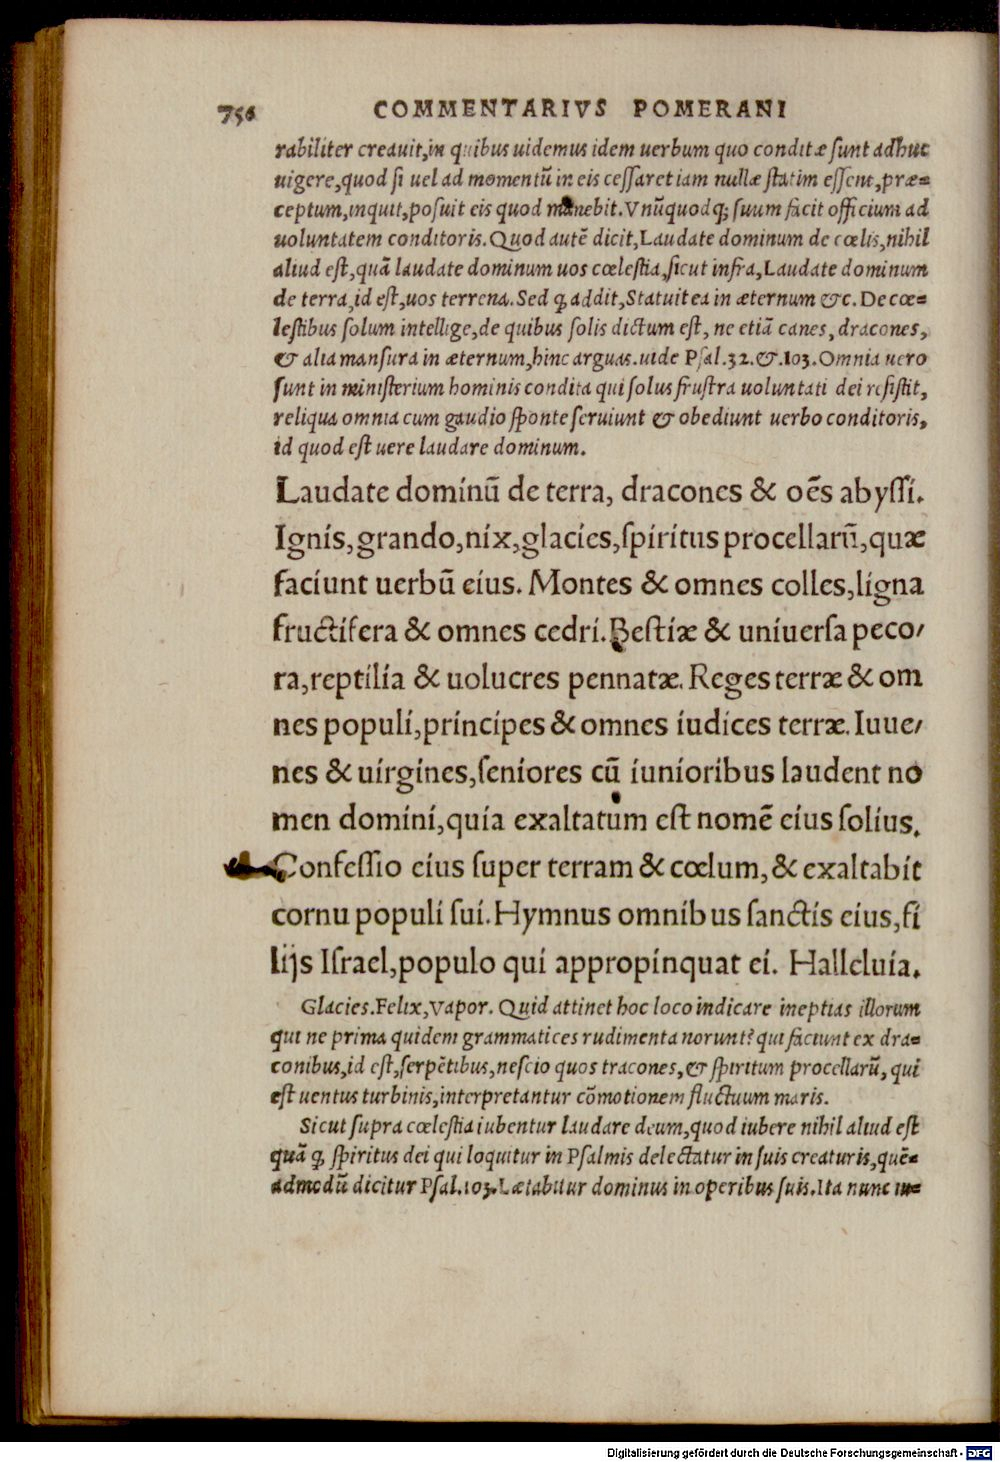 756 COMMENTARIVS POMERANI
rabiliter creauit,in quibus uidemus idem uerbum quo conditæ ſunt adhuc
uigere,quod ſi uel ad momentū in eis ceſſaret iam nullæ ſtatim eſſent,præ=
ceptum,inquit,poſuit eis quod manebit.Vnūquodq; ſuum facit officium ad
uoluntatem conditoris.Quod autē dicit,Laudate dominum de cœlis,nihil
aliud eſt,quā laudate dominum uos cœleſtia,ſicut infra,Laudate dominum
de terra,id eſt,uos terrena.Sed ꝙ addit,Statuit ea in æternum &c.De cœ=
leſtibus ſolum intellige,de quibus ſolis dictum eſt, ne etiā canes, dracones,
& alia manſura in æternum,hinc arguas.uide Pſal.32.&.103.Omnia uero
ſunt in miniſterium hominis condita qui ſolus fruſtra uoluntati dei reſiſtit,
reliqua omnia cum gaudio ſponte ſeruiunt & obediunt uerbo conditoris,
id quod eſt uere laudare dominum.
Laudate dominū de terra, dracones & oēs abyſſi.
Ignis,grando,nix,glacies,ſpiritus procellarū,quæ
faciunt uerbū eius. Montes & omnes colles,ligna
fructifera & omnes cedri.Beſtiæ & uniuerſa peco/
ra,reptilia & uolucres pennatæ.Reges terræ & om
nes populi,principes & omnes iudices terræ.Iuue/
nes & uirgines,ſeniores cū iunioribus laudent no
men domini,quia exaltatum eſt nomē eius ſolius.
Confeſſio eius ſuper terram & cœlum,& exaltabit
cornu populi ſui.Hymnus omnibus ſanctis eius,fi
lijs Iſrael,populo qui appropinquat ei. Halleluia.
Glacies.Felix,Vapor. Quid attinet hoc loco indicare ineptias illorum
qui ne prima quidem grammatices rudimenta norunt? qui faciunt ex dra=
conibus,id eſt,ſerpētibus,neſcio quos tracones,& ſpiritum procellarū, qui
eſt uentus turbinis,interpretantur cōmotionem fluctuum maris.
Sicut ſupra cœleſtia iubentur laudare deum,quod iubere nihil aliud eſt
quā ꝙ ſpiritus dei qui loquitur in Pſalmis delectatur in ſuis creaturis,quē=
admodū dicitur Pſal.103.Lætabitur dominus in operibus ſuis.Ita nunc iu=
Digitalisierung gefördert durch die Deutsche Forschungsgemeinschaft - DFG